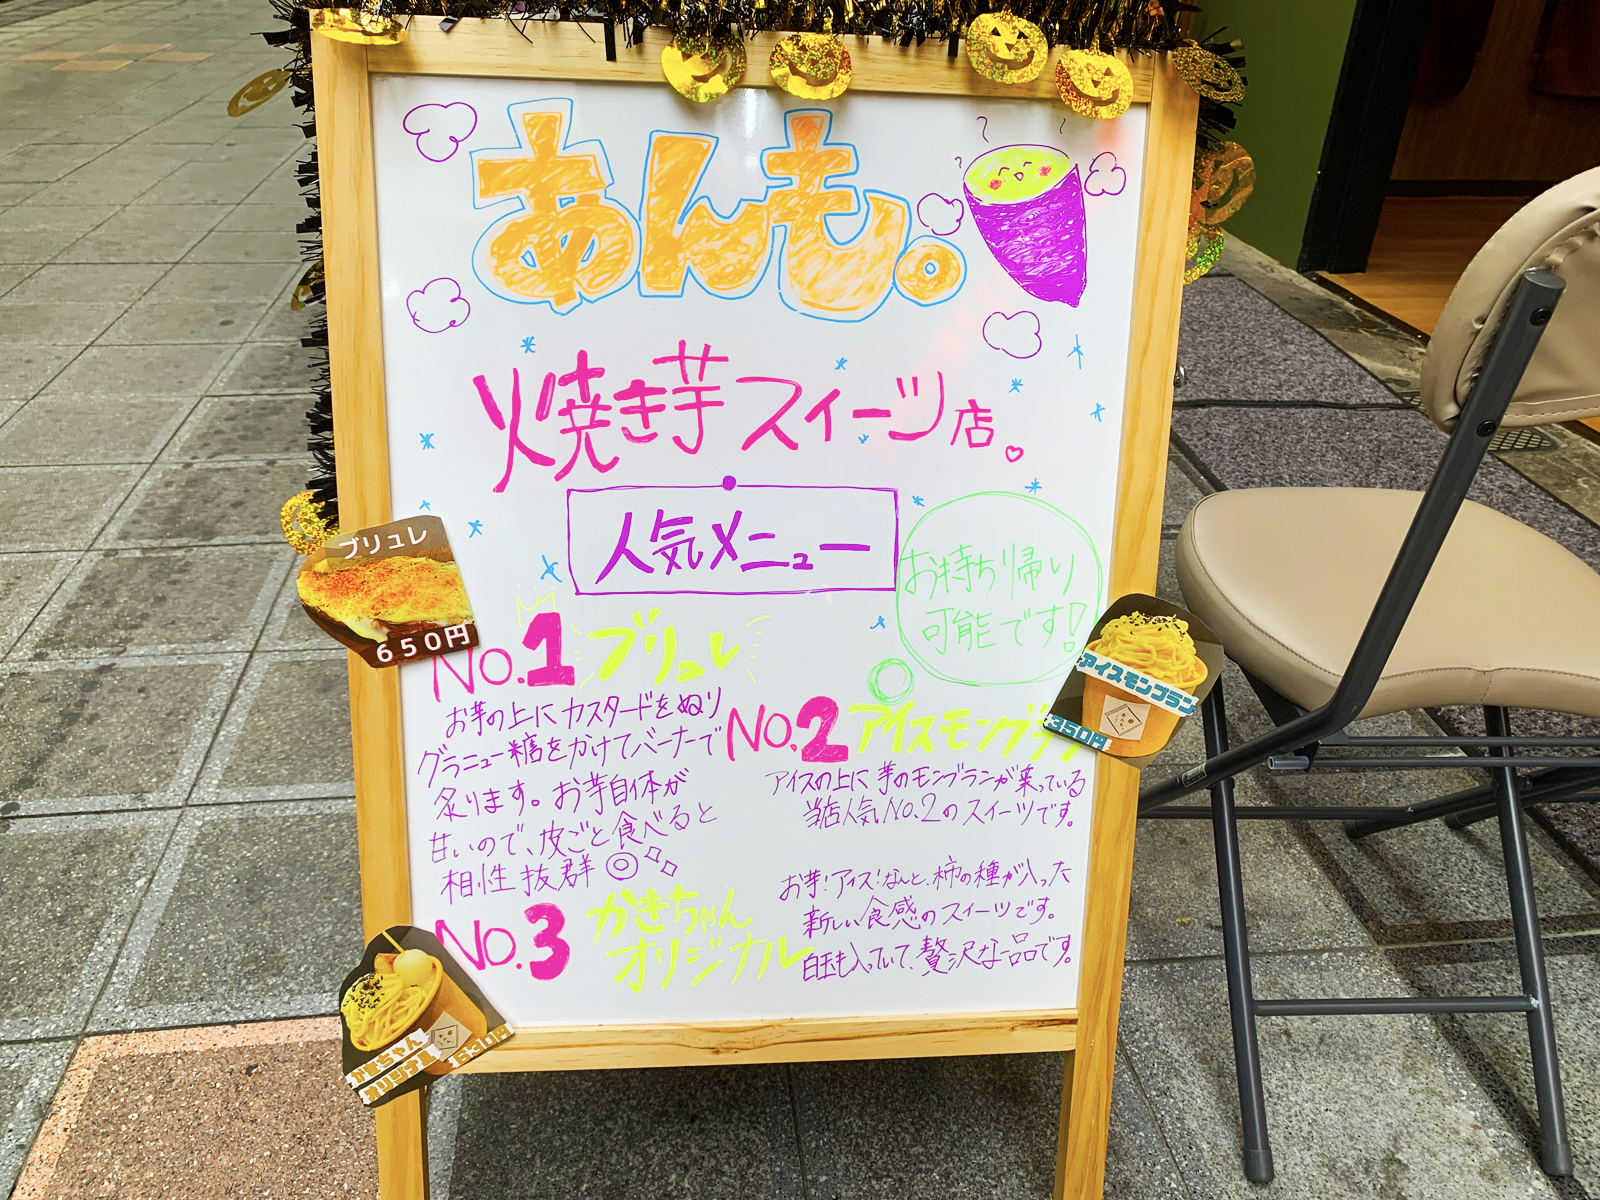 あんも。
焼き芋スイーツ店
人気メニュー
お持ち帰り
可能です!
ブリュレ
650円
No.1 ブリュレ
お芋の上にカスタードをぬり
グラニュー糖をかけてバーナーで
炙ります。お芋自体が
甘いので、皮ごと食べると
相性抜群◎
No.2 アイスモンブラン
アイスの上に芋のモンブランが乗っている
当店人気No.2のスイーツです。
アイスモンブラン
350円
No.3 かきちゃん
オリジナル
お芋!アイス!なんと、柿の種が入った
新しい食感のスイーツです。
白玉も入っていて、贅沢な一品です。
かきちゃん
オリジナル
630円